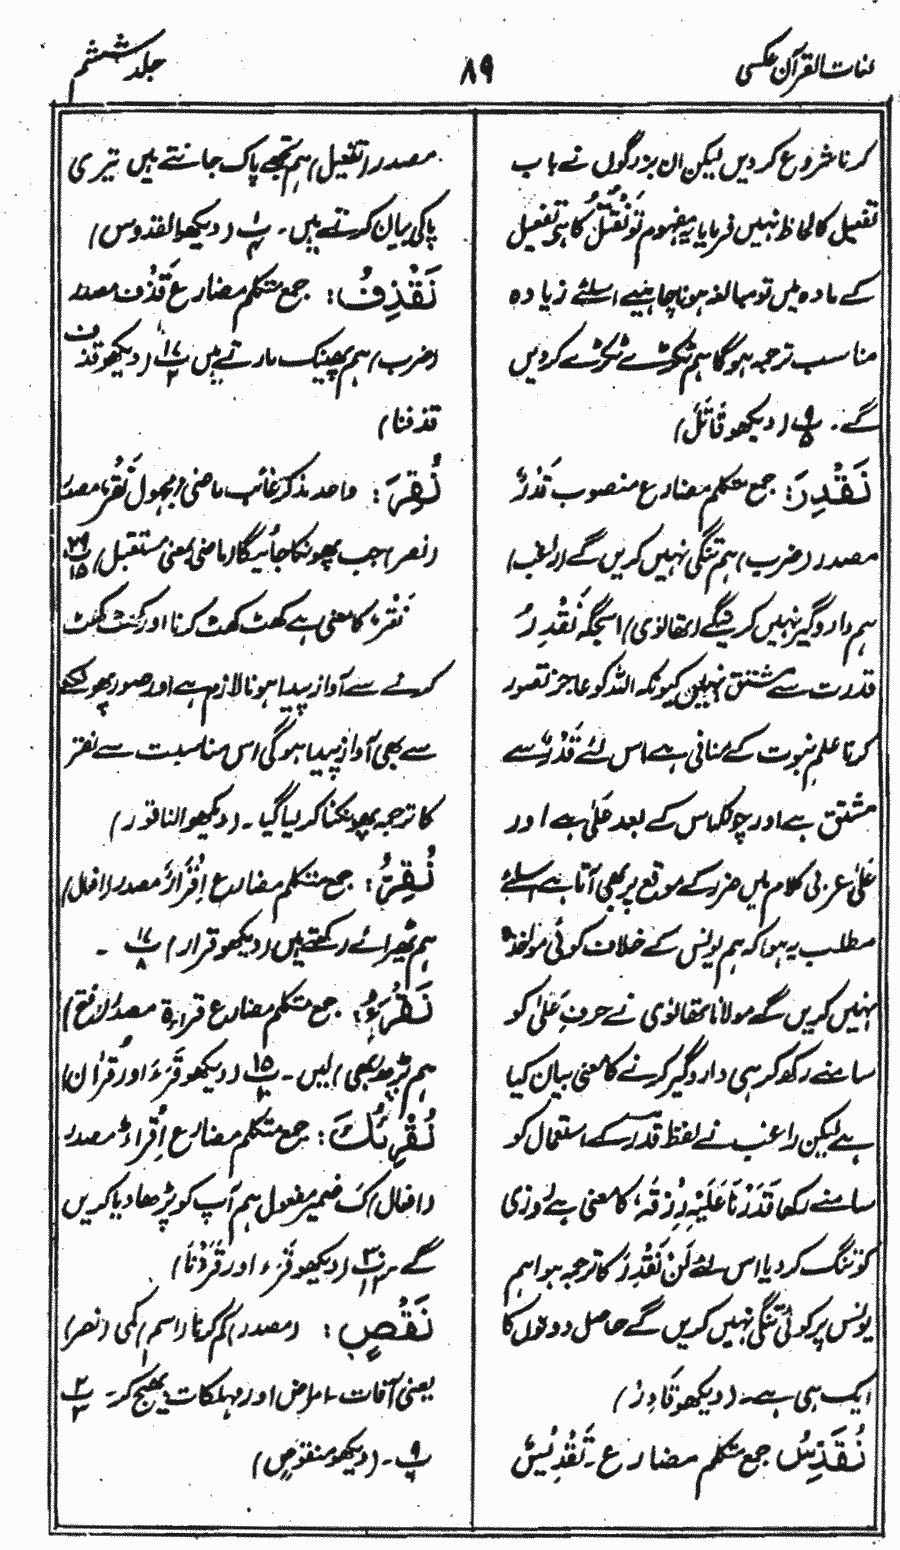 لغات القرآن عکسی
۸۹
جلد ششم
کرنا شروع کر دیں لیکن ان بزرگوں نے باب
تفعیل کا لحاظ نہیں فرمایا یہ مفہوم تو نُقَتِّلُ کا ہی تفعیل
کے مادہ میں تو مبالغہ ہونا چاہئیے اسلئے زیادہ
مناسب ترجمہ ہوگا ہم ٹکڑے ٹکڑے کر دیں
گے۔ پ ۹/۵ (دیکھو قَاتَلَ)
نَقْدِرَ: جمع متکلم مضارع منصوب قَدْرٌ
مصدر (ضرب) ہم تنگی نہیں کریں گے (راغب)
ہم داروگیر نہیں کرینگے (تھانوی) اسجگہ نَقْدِرُ
قدرت سے مشتق نہیں کیونکہ اللہ کو عاجز تصور
کرنا علم نبوت کے منافی ہے اس لئے قَدْرٌ سے
مشتق ہے اور چونکہ اس کے بعد عَلٰی ہے اور
عَلٰی عربی کلام میں ضرر کے موقع پر بھی آتا ہے اسلئے
مطلب یہ ہوا کہ ہم یونس کے خلاف کوئی مواخذہ
نہیں کریں گے مولانا تھانوی نے حرف عَلٰی کو
سامنے رکھ کر ہی داروگیر کرنے کا معنی بیان کیا
ہے لیکن راغب نے لفظ قدر کے استعمال کو
سامنے رکھا قَدَرْنَا عَلَيْهِ رِزْقَهٗ کا معنی ہے روزی
کو تنگ کر دیا اس لئے لَنْ نَقْدِرَ کا ترجمہ ہوا ہم
یونس پر کوئی تنگی نہیں کریں گے حاصل دونوں کا
ایک ہی ہے۔ (دیکھو قَادِرٌ)
نُقَدِّسُ جمع متکلم مضارع۔ تَقْدِیْسٌ
مصدر (تفعیل) ہم تجھے پاک جانتے ہیں تیری
پاکی بیان کرتے ہیں۔ پ ۱/۴ (دیکھو القدوس)
نَقْذِفُ: جمع متکلم مضارع قَذْف مصدر
(ضرب) ہم پھینک مارتے ہیں پ ۱۷/۲ (دیکھو قذف
قذفنا)
نُقِرَ: واحد مذکر غائب ماضی مجہول نَقْرٌ مصدر
(نصر) جب پھونکا جائیگا (ماضی بمعنی مستقبل) پ ۲۹/۱۵
نَقْرٌ کا معنی ہے کھٹ کھٹ کرنا اور کھٹ کھٹ
کرنے سے آواز پیدا ہونا لازم ہے اور صور پھونکنے
سے بھی آواز پیدا ہوگی اس مناسبت سے نقر
کا ترجمہ پھونکنا کر لیا گیا۔ (دیکھو الناقور)
نُقِرُّ: جمع متکلم مضارع اِقْرَارٌ مصدر (افعال)
ہم ٹھہرائے رکھتے ہیں (دیکھو قرار) پ ۱۷/۸ ۔
نَقْرَءُ: جمع متکلم مضارع قراءۃ مصدر (فتح)
ہم پڑھ بھی لیں۔ پ ۱۵/۱۰ (دیکھو قَرَءَ اور قرآن)
نُقْرِئُكَ: جمع متکلم مضارع اِقْراءٌ مصدر
(افعال) کَ ضمیر مفعول ہم آپ کو پڑھا دیا کریں
گے پ ۳۰/۱۲ (دیکھو قَرَءَ اور قَرَدْنَا)
نَقْصٍ: (مصدر) کم کرنا (اسم) کمی (نصر)
یعنی آفات۔ امراض اور مہلکات بھیج کر۔ ۲/۳
پ ۹۔ (دیکھو منقوص)